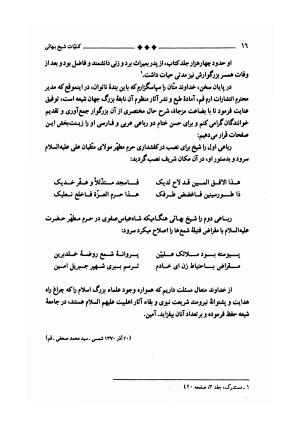 ۱۶ ◆ ◆ ◆ کلیّات شیخ بهائی
او حدود چهارهزار جلد کتاب، از پدر بمیراث برد و زنی دانشمند و فاضل بود و بعد از
وفات همسر بزرگوارش نیز مدتی حیات داشت.¹
در پایان سخن، خداوند منّان را سپاسگزارم که باین بندهٔ ناتوان، در اینموقع که مدیر
محترم انتشارات ارم قم، آمادهٔ طبع و نشر آثار منظوم آن نابغهٔ بزرگ جهان شیعه است، توفیق
عنایت فرمود تا با بضاعت مزجاة، شرح حال مختصری از آن بزرگوار جمع‌آوری و تقدیم
خوانندگان گرامی کنم و برای حسن ختام دو رباعی عربی و فارسی او را زینت‌بخش این
صفحات قرار می‌دهیم:
رباعی اول را شیخ برای نصب در کفشداری حرم مطهّر مولای متّقیان علی علیه‌السلام
سرود و بدستور او، در آن مکان شریف نصب گردید:
هذا الافق المبین قد لاح لدیک فاسجد متذلّلاً و عفّر خدیک
ذا طور سینین فاغضض طرفک هذا حرم العزّة فاخلع نعلیک
رباعی دوم را شیخ بهائی هنگامیکه شاه‌عباس صفوی در حرم مطهّر حضرت
علیه‌السلام با مقراض فتیلهٔ شمع‌ها را اصلاح میکرد سرود:
پیوسته بود ملائک علیّین پروانهٔ شمع روضهٔ خلدبرین
مقراض باحتیاط زن ای خادم ترسم ببری شهپر جبریل امین
از خداوند متعال مسئلت داریم که همواره وجود علماء بزرگ اسلام را که چراغ راه
هدایت و پشتوانهٔ نیرومند شریعت نبوی و بقاء آثار اهلبیت علیهم السلام هستند، در جامعهٔ
شیعه حفظ فرموده و بر تعداد آنان بیفزاید. آمین.
(۲۰ آذر ۱۳۷۰ شمسی ـ سید محمد صحفی ـ قم)
۱ ـ مستدرک، جلد ۳، صفحه ۴۲۰